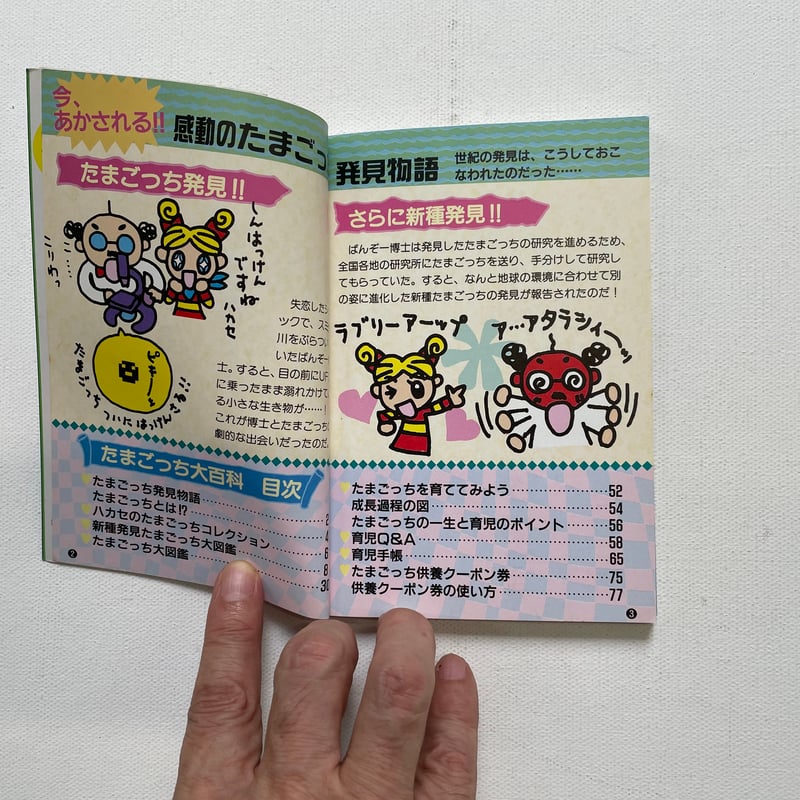 今、
あかされる!!
感動のたまごっ
たまごっち発見!!
しんはっけん
ですね
ハカセ
こりゃっ
こ……
ピキーッ
たまごっち ついに はっけんさる!!
失恋した
ックで、スミ
川をぶらつい
いたばんぞー
士。すると、目の前にUF
に乗ったまま溺れかけて
る小さな生き物が……!
これが博士とたまごっち
劇的な出会いだったのだ。
たまごっち大百科 目次
たまごっち発見物語……2
たまごっちとは!?……4
ハカセのたまごっちコレクション……6
新種発見たまごっち大図鑑……8
たまごっち大図鑑……30
2
発見物語
世紀の発見は、こうしておこ
なわれたのだった……
さらに新種発見!!
ばんぞー博士は発見したたまごっちの研究を進めるため、
全国各地の研究所にたまごっちを送り、手分けして研究し
てもらっていた。すると、なんと地球の環境に合わせて別
の姿に進化した新種たまごっちの発見が報告されたのだ!
ラブリーアーップ
ア…アタラシィーッ
たまごっちを育ててみよう……52
成長過程の図……54
たまごっちの一生と育児のポイント……56
育児Q&A……58
育児手帳……65
たまごっち供養クーポン券……75
供養クーポン券の使い方……77
3